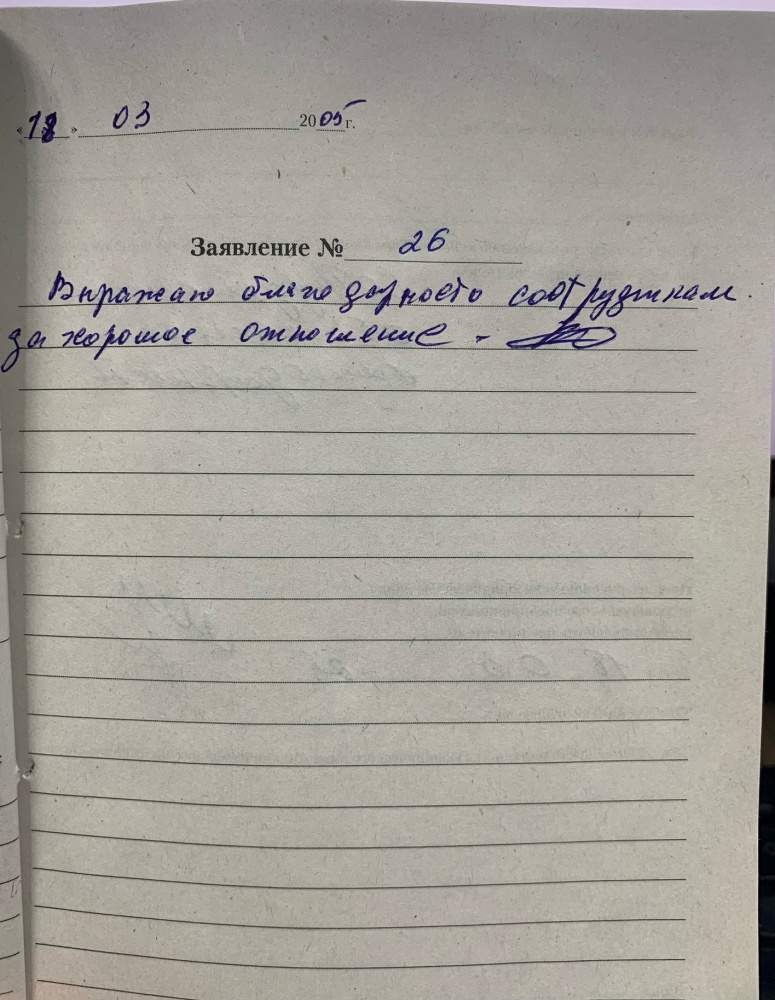 «18» 03 2005 г.
Заявление № 26
Выражаю благодарность сотрудникам
за хорошое отношение -